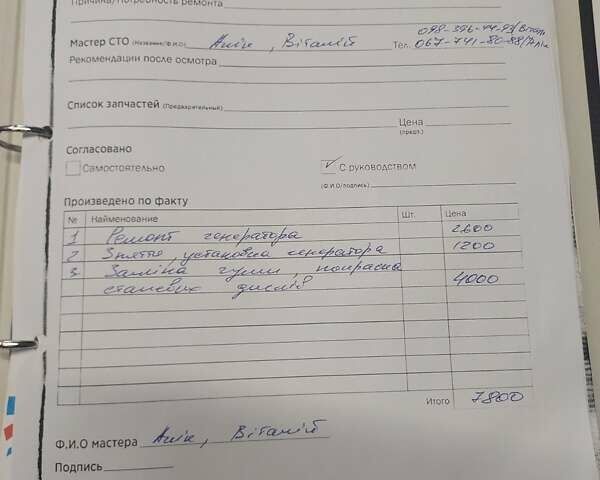 Причина/Потребность ремонта
098-396-44-93/Віталій
Мастер СТО (Название/Ф.И.О) Анік, Віталій Тел. 067-741-80-88/Анік
Рекомендации после осмотра
Список запчастей (Предварительный)
Цена
(предп.)
Согласовано
Самостоятельно
✓ С руководством
(Ф.И.О/подпись)
Произведено по факту
№ Наименование Шт. Цена
1 Ремонт генератора 2600
2 Зняття, установка генератора 1200
3 Заміна гуми, покраска
сталевих дисків 4000
Итого 7800
Ф.И.О мастера Анік, Віталій
Подпись